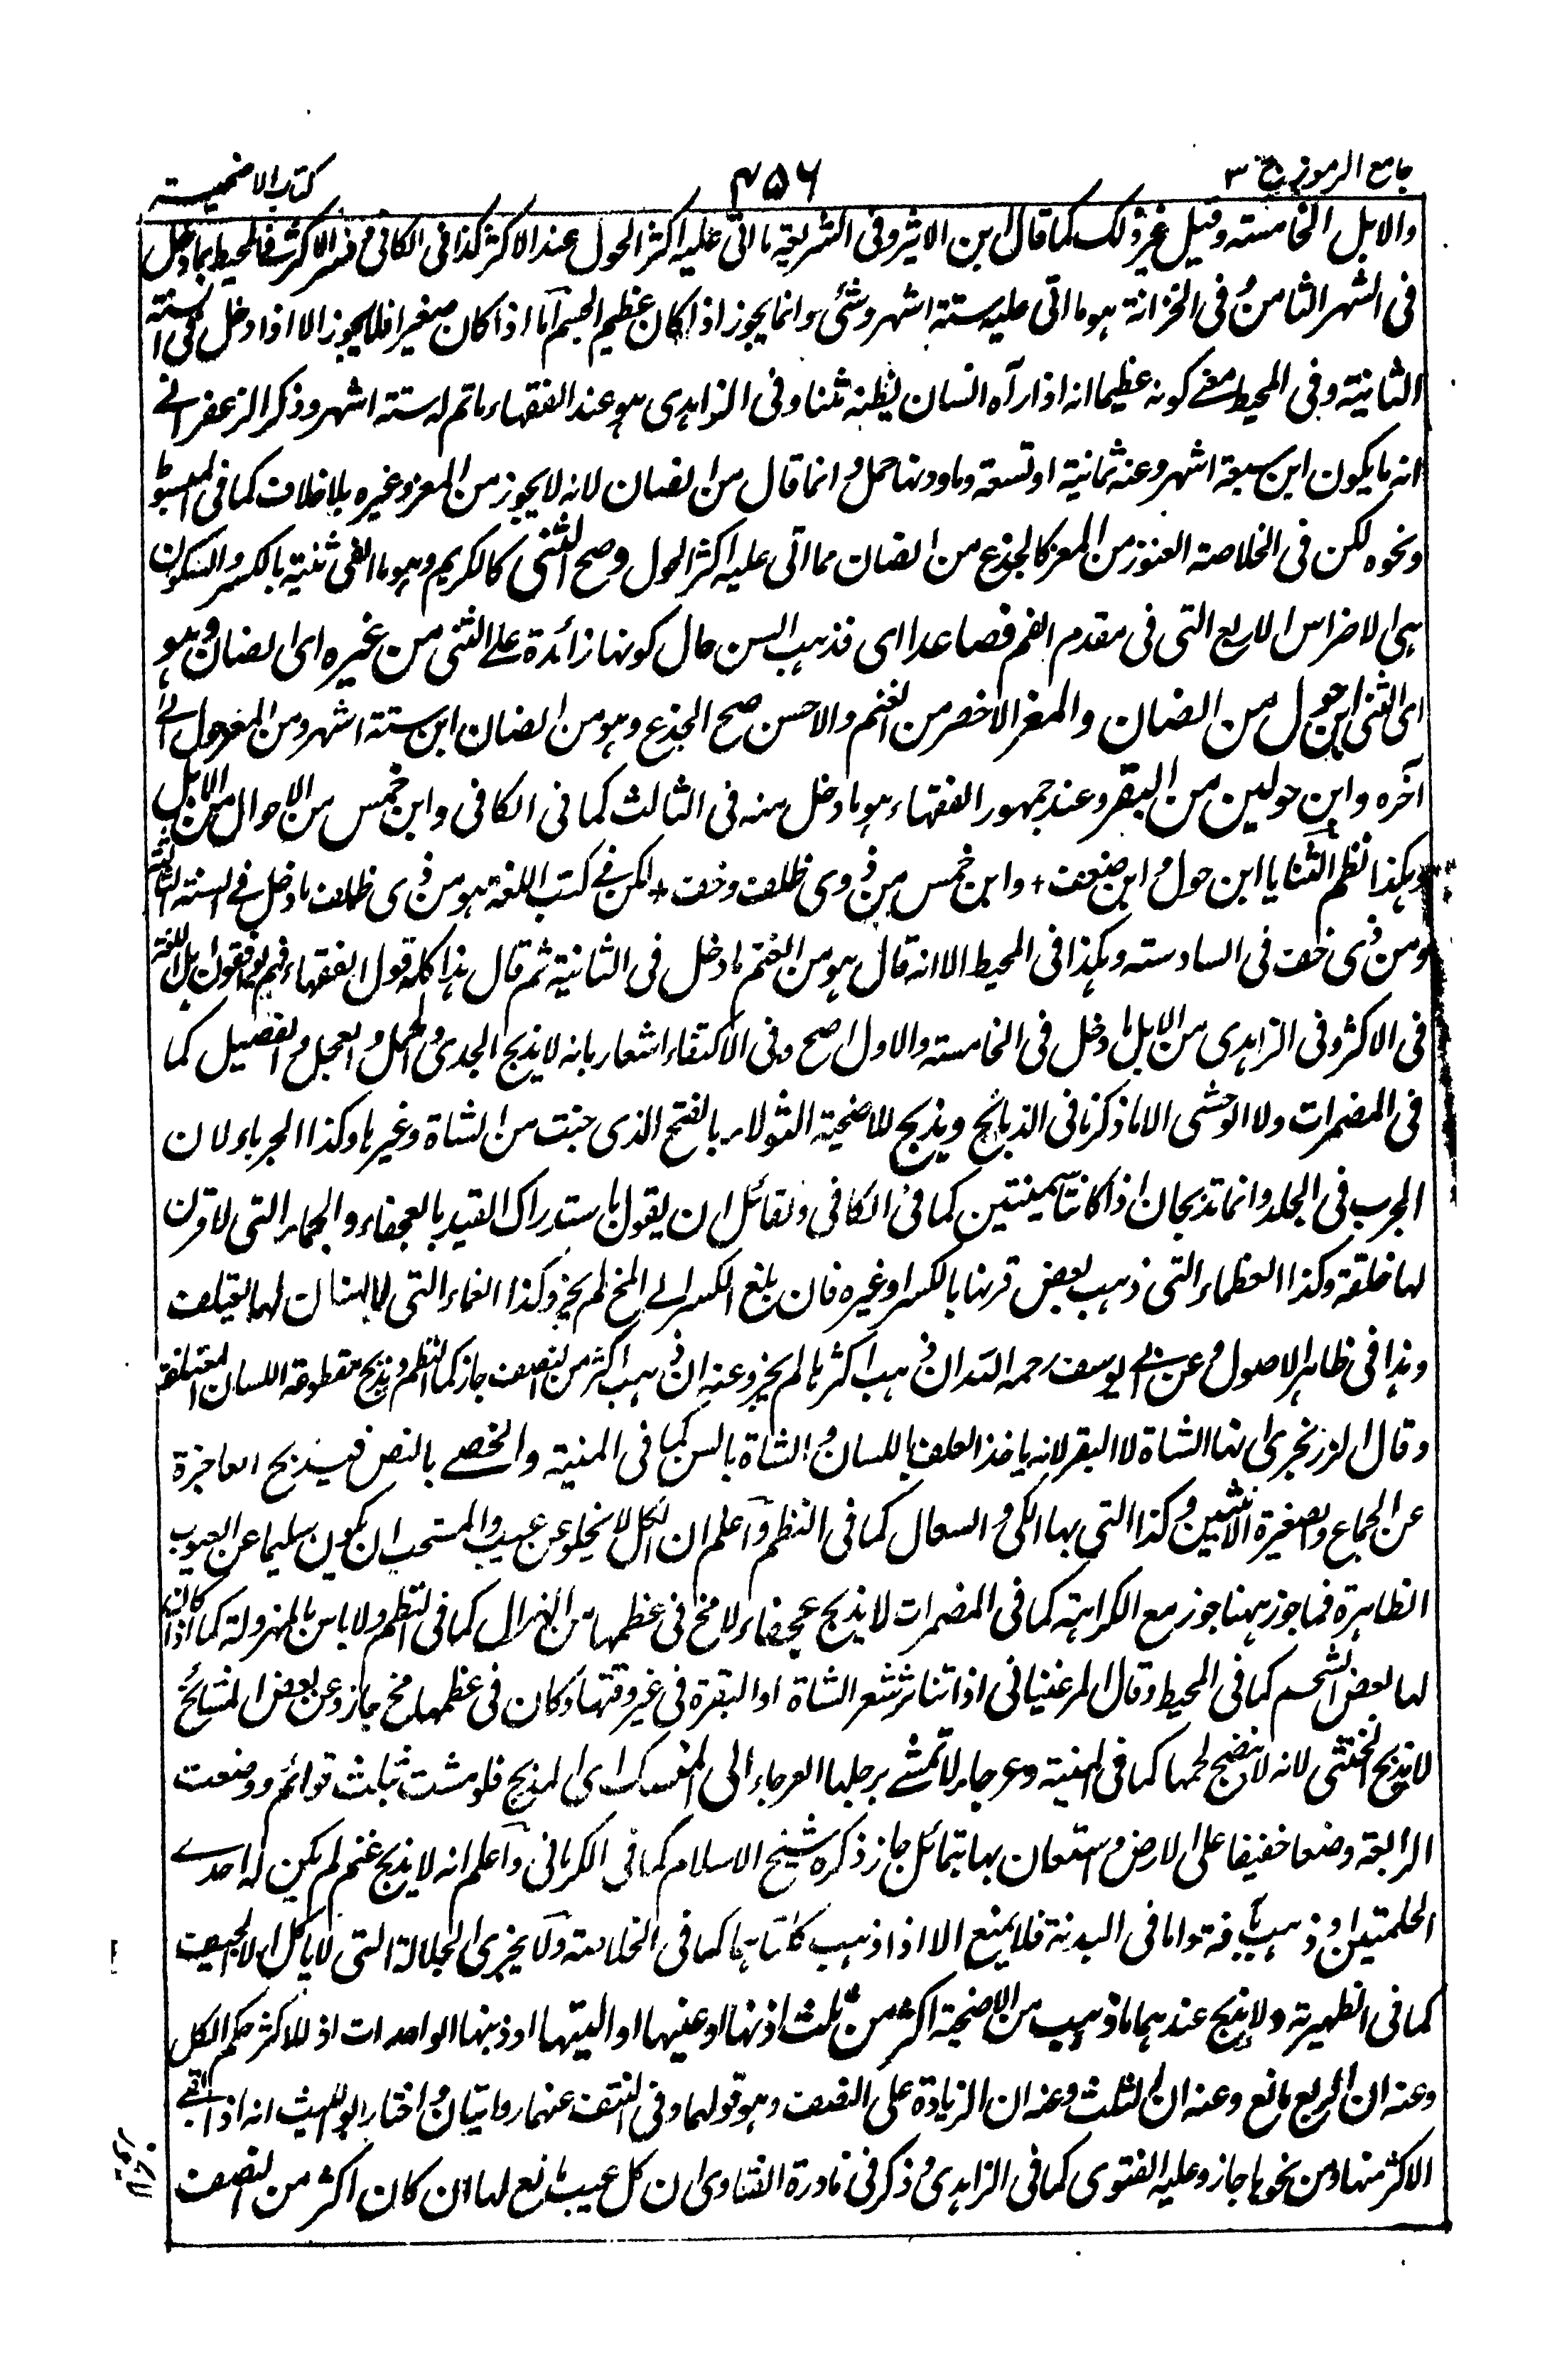 جامع الرموز ج ٣
٤٥٦
كتاب الاضحية
والابل الخامسة وقيل غير ذلك كما قال ابن الاثير وفى الشريعة ما اتى عليه اكثر الحول عند الاكثر كذا فى الكافى وفسر الاكثر فى المحيط بما دخل
فى الشهر الثامن وفى الخزانة هو ما اتى عليه ستة اشهر وشئ وانما يجوز اذا كان عظيم الجسم اما اذا كان صغيرا فلا يجوز الا اذا دخل فى السنة
الثانية وفى المحيط معنے كونه عظيما انه اذا رآه انسان يظنه ثنيا وفى الزاهدى هو عند الفقهاء ما تم له ستة اشهر وذكر الزعفرانے
انه ما يكون ابن سبعة اشهر وعنه ثمانية او تسعة وما دونها حمل وانما قال من الضان لانه لا يجوز من المعز وغيره بلا خلاف كما فى المبسوط
ونحوه لكن فى الخلاصة العنوز من المعز كالجذع من الضان مما اتى عليه اكثر الحول وصح الثنى كالكريم وهو ما القى ثنية بالكسر والسكون
هى الاضراس الاربع التى فى مقدم الفم فصاعدا اى فذهب السن حال كونها زائدة علے الثنى من غيره اى الضان وهو
اى الثنى ابن حول من الضان والمعز الاخصر من الغنم والاحسن صح الجذع وهو من الضان ابن ستة اشهر ومن المعز حول الے
آخره وابن حولين من البقر وعند جمهور الفقهاء هو ما دخل منه فى الثالث كما فى الكافى وابن خمس من الاحوال من الابل
وهكذا نظم الثنايا ابن حول وابن ضعف + وابن خمس من ذوى ظلف وخف + لكن فے كتب اللغة هو من ذى ظلف ما دخل فے السنة الثالثة
ومن ذى خف فى السادسة وهكذا فى المحيط الا انه قال هو من الغنم ما دخل فى الثانية ثم قال هذا كله قول الفقهاء فهم يوافقون اهل اللغة
فى الاكثر وفى الزاهدى من الابل ما دخل فى الخامسة والاول اصح وفى الاكتفاء اشعار بانه لا يذبح الجدى والحمل والعجل والفصيل كما
فى المضمرات ولا الوحشى الا ما ذكرنا فى الذبائح ويذبح للاضحية الثولاء بالفتح الذى جنت من الشاة وغيرها وكذا الجرباء لان
الجرب فى الجلد وانما تذبحان اذا كانتا سمينتين كما فى الكافى ولقائل ان يقول باستدراك القيد بالعجفاء والجماء التى لا قرن
لها خلقة وكذا العظماء التى ذهب بعض قرنها بالكسر او غيره فان بلغ الكسر الے المخ لم يجز وكذا الغماء التى لا اسنان لها تعتلف
وهذا فى ظاهر الاصول وعن ابے يوسف رحمه الله ان ذهب اكثرها لم يجز وعنه ان ذهب اكثر من النصف جاز كما فى النظم ويذبح مقطوعة اللسان المعتلفة
وقال الزرنجرى انها الشاة لا البقر لانه ياخذ العلف باللسان والشاة بالسن كما فى المنية والخصے بالنص فيذبح العاجزة
عن الجماع والصغيرة الانثيين وكذا التى بها الكى والسعال كما فى النظم واعلم ان الكل لا يخلو عن عيب والمستحب ان يكون سليما عن العيوب
الظاهرة فما جوز ههنا جوز مع الكراهة كما فى المضمرات لا يذبح عجفاء لا مخ فى عظمها من الهزال كما فى النظم ولا باس بالمهزولة كما اذا كان
لها بعض الشحم كما فى المحيط وقال المرغينانى اذا تناثر شعر الشاة او البقرة فى غير وقتها وكان فى عظمها مخ جاز وعن بعض المشائخ
لا يذبح الخنثى لانه لا ينضج لحمها كما فى المنية وعرجاء لا تمشے برجلها العرجاء الى المنسك اى المذبح فلو مشت بثلث قوائم ووضعت
الرابعة وضعا خفيفا على الارض واستعان بها بتمائل جاز ذكره شيخ الاسلام كما فى الكرمانى واعلم انه لا يذبح غنم لم يكن له احدے
الحلمتين او ذهب بآفة واما فى البدنة فلا يمنع الا اذا ذهب كلتاهما كما فى الخلاصة ولا يجزى الجلالة التى لا ياكل الا الجيف
كما فى الظهيرية ولا يذبح عندهما ما ذهب من الاضحية اكثر من ثلث اذنها او عينها او اليتها او ذنبها الواحدات اذ للاكثر حكم الكل
وعنه ان الربع مانع وعنه ان الثلث وعنه ان الزيادة على النصف وهو قولهما وفى النتف عنهما روايتان واختار ابو الليث انه اذا بقے
الاكثر منها ومن نحوها جاز وعليه الفتوى كما فى الزاهدى وذكر فى نادرة الفتاوى ان كل عيب مانع لها ان كان اكثر من النصف
لا يجوز